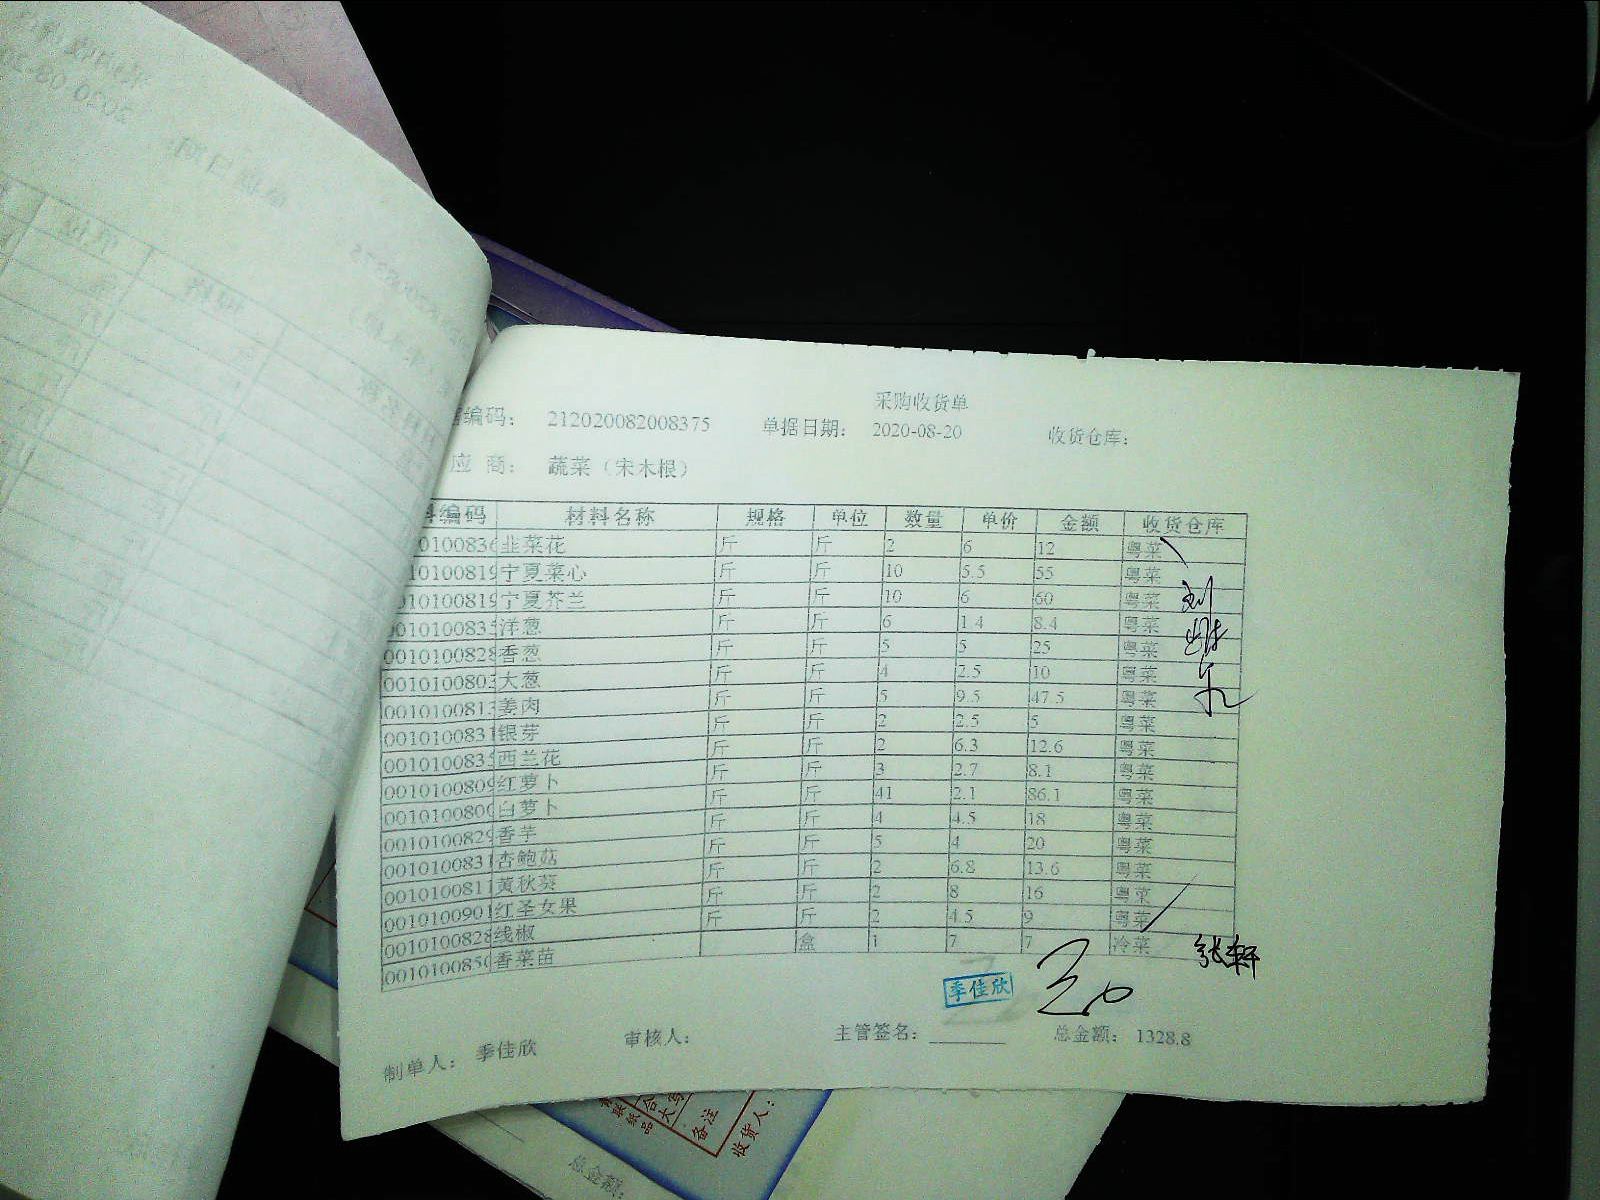 采购收货单
编码： 212020082008375 单据日期： 2020-08-20 收货仓库：
应 商： 蔬菜（宋木根）
编码 材料名称 规格 单位 数量 单价 金额 收货仓库
韭菜花 斤 斤 2 6 12 粤菜
宁夏菜心 斤 斤 10 5.5 55 粤菜
宁夏芥兰 斤 斤 10 6 60 粤菜
洋葱 斤 斤 6 1.4 8.4 粤菜
香葱 斤 斤 5 5 25 粤菜
大葱 斤 斤 4 2.5 10 粤菜
姜肉 斤 斤 5 9.5 47.5 粤菜
银芽 斤 斤 2 2.5 5 粤菜
西兰花 斤 斤 2 6.3 12.6 粤菜
红萝卜 斤 斤 3 2.7 8.1 粤菜
白萝卜 斤 斤 41 2.1 86.1 粤菜
香芋 斤 斤 4 4.5 18 粤菜
杏鲍菇 斤 斤 5 4 20 粤菜
黄秋葵 斤 斤 2 6.8 13.6 粤菜
红圣女果 斤 斤 2 8 16 粤菜
线椒 斤 斤 2 4.5 9 粤菜
香菜苗 盒 1 7 7 冷菜
张轩
季佳欣
制单人： 季佳欣 审核人： 主管签名： 总金额： 1328.8
备注
收货人：
总金额：